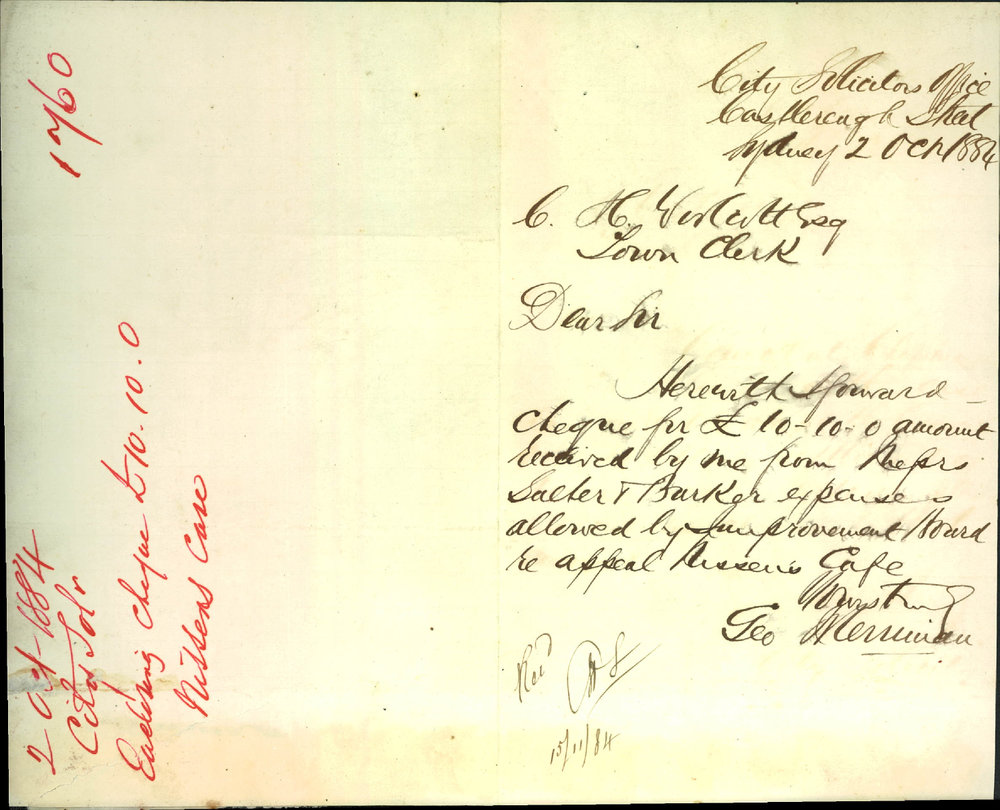 1760
2 Oct 1884
City Solr
Enclosing Cheque £10.10.0
Nissens Case
City Solicitors Office
Castlereagh Street
Sydney 2 Oct 1884
C. H. Woolcott Esq
Town Clerk
Dear Sir
Herewith I forward
cheque for £10-10-0 amount
received by me from Messrs
Salter & Barker expenses
allowed by Improvement Board
re appeal Nissens Case
Yours truly
Geo Merriman
Recd
15/11/84